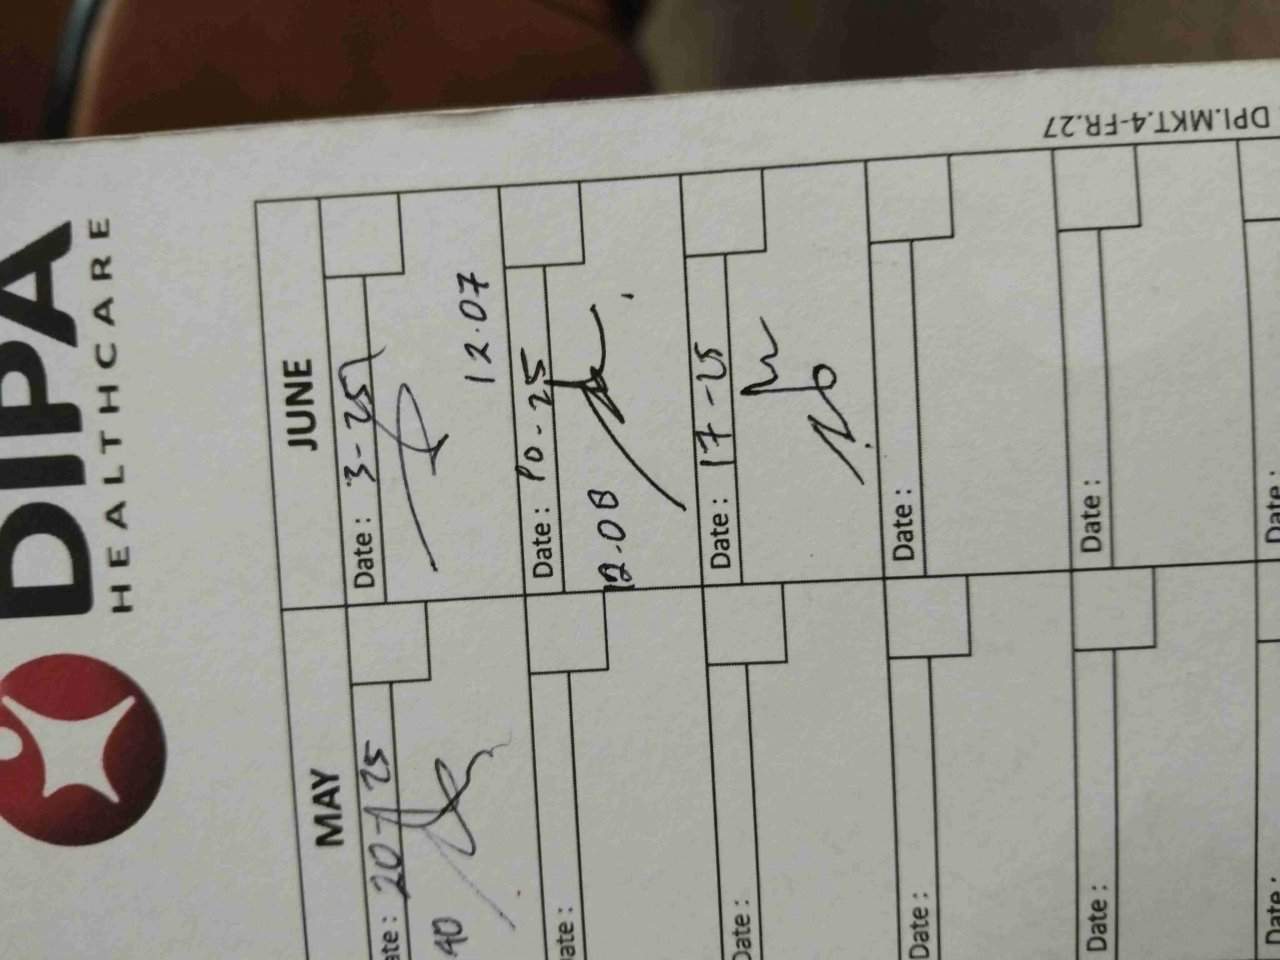 DIPA
HEALTHCARE
MAY
JUNE
Date: 20-25
40
Date: 3-25
12.07
Date:
Date: 10-25
12.08
Date:
Date: 17-25
Date:
Date:
Date:
Date:
Date:
Date:
DPI.MKT.4-FR.27